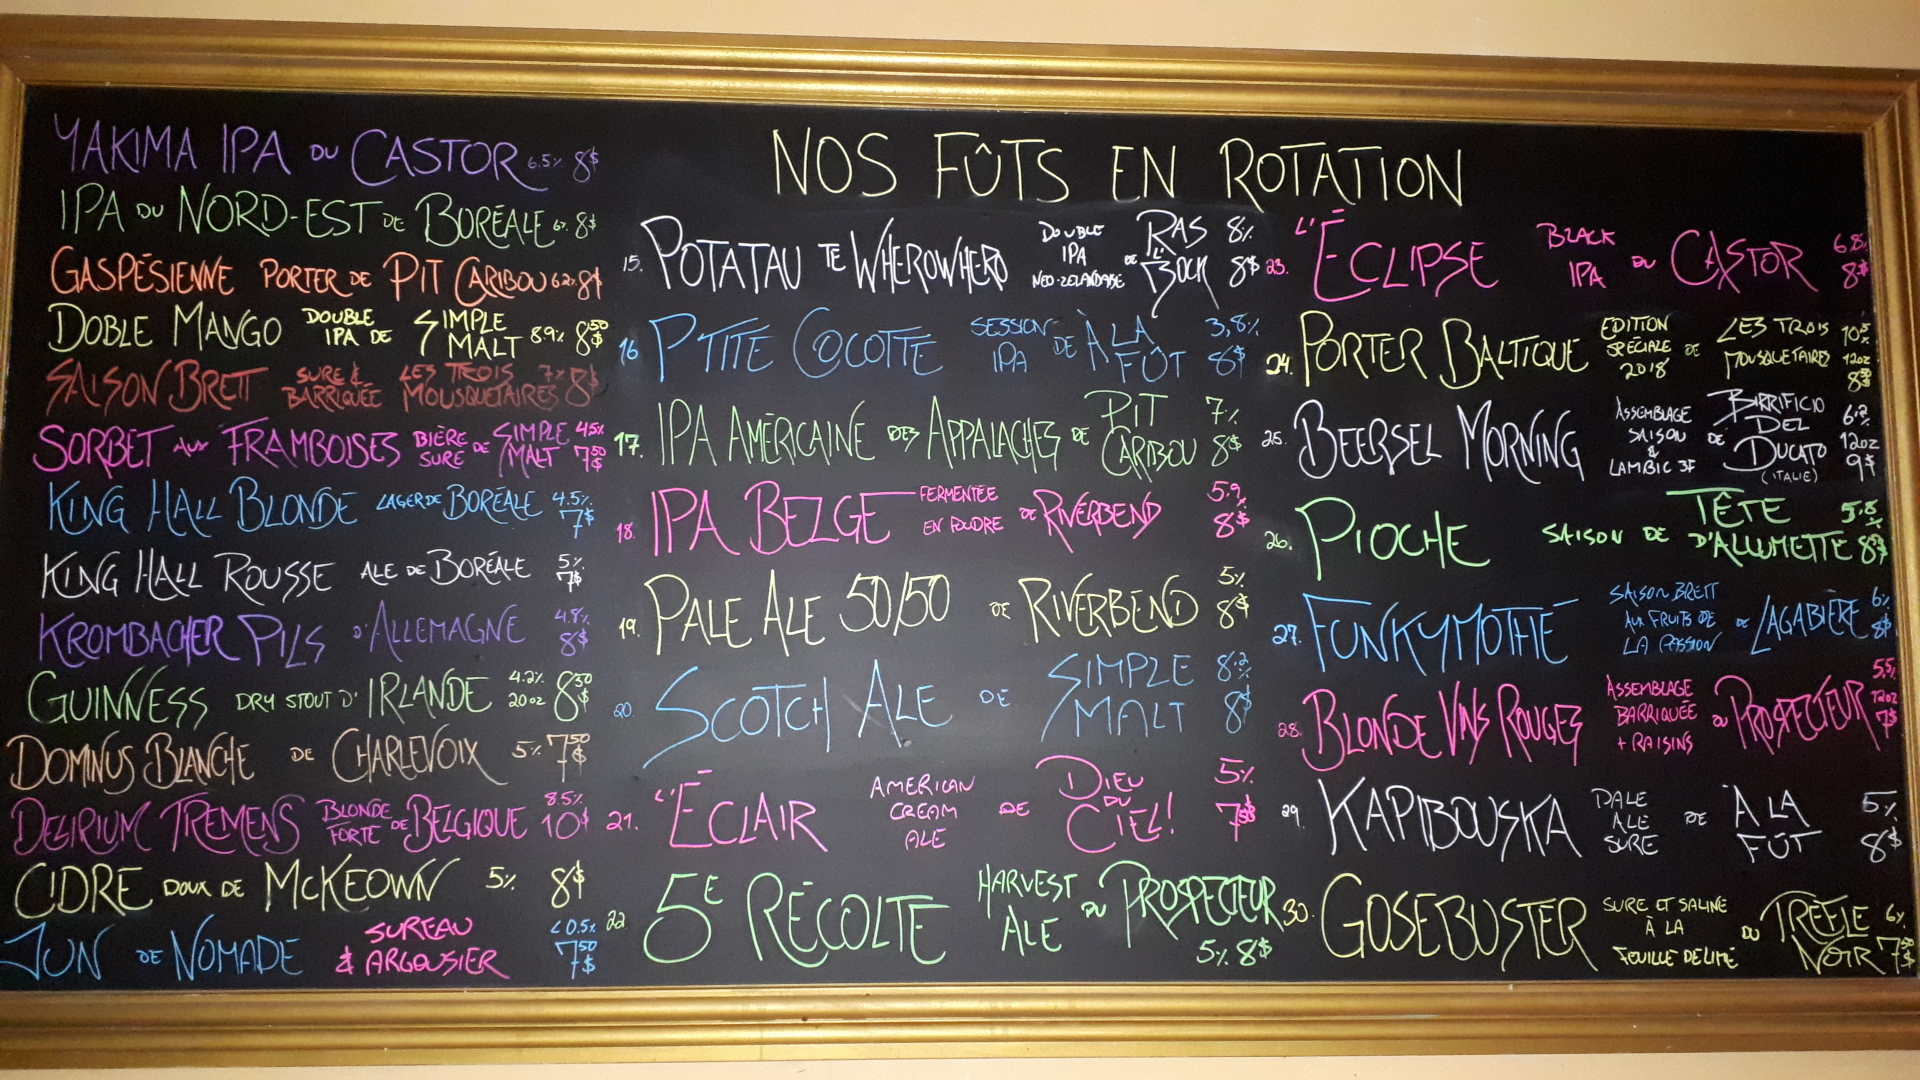 YAKIMA IPA DU CASTOR 6.5% 8$
IPA DU NORD-EST DE BORÉALE 6% 8$
GASPÉSIENNE PORTER DE PIT CARIBOU 6.2% 8$
DOBLE MANGO DOUBLE IPA DE SIMPLE MALT 8.9% 8.50$
SAISON BRETT SURE & BARRIQUÉE LES TROIS MOUSQUETAIRES 7% 8$
SORBET AUX FRAMBOISES BIÈRE SURE DE SIMPLE MALT 4.5% 7.50$
KING HALL BLONDE LAGER DE BORÉALE 4.5% 7$
KING HALL ROUSSE ALE DE BORÉALE 5% 7$
KROMBACHER PILS D'ALLEMAGNE 4.8% 8$
GUINNESS DRY STOUT D'IRLANDE 4.2% 20oz 8.50$
DOMINUS BLANCHE DE CHARLEVOIX 5% 7.50$
DELIRIUM TREMENS BLONDE FORTE DE BELGIQUE 8.5% 10$
CIDRE DOUX DE McKEOWN 5% 8$
JUN DE NOMADE SUREAU & ARGOUSIER <0.5% 7.50$
NOS FÛTS EN ROTATION
15. POTATAU TE WHEROWHERO DOUBLE IPA NEO-ZELANDAISE DE RAS L'BOCK 8% 8$
16 P'TITE C@COTTE SESSION IPA DE À LA FÛT 3,8% 8$
17. IPA AMÉRICAINE DES APPALACHES DE PIT CARIBOU 7% 8$
18. IPA BELGE FERMENTÉE EN FOUDRE DE RIVERBEND 5.9% 8$
19. PALE ALE 50/50 DE RIVERBEND 5% 8$
20. SCOTCH ALE DE SIMPLE MALT 8.2% 8$
21. L'ÉCLAIR AMERICAN CREAM ALE DE DIEU DU CIEL! 5% 7.50$
22 5E RÉCOLTE HARVEST ALE DU PROSPECTEUR 5% 8$
23. L'ÉCLIPSE BLACK IPA DU CASTOR 6.8% 8$
24. PORTER BALTIQUE ÉDITION SPÉCIALE 2018 DE LES TROIS MOUSQUETAIRES 10.5% 12oz 8.50$
25. BEERSEL MORNING ASSEMBLAGE SAISON & LAMBIC 3F DE BIRRIFICIO DEL DUCATO (ITALIE) 6.2% 12oz 9$
26. PIOCHE SAISON DE TÊTE D'ALLUMETTE 5.8% 8.50$
27. FUNKYMOTHÉ SAISON BRETT AUX FRUITS DE LA PASSION DE LAGABIÈRE 6% 8$
28. BLONDE VINS ROUGES ASSEMBLAGE BARRIQUÉE + RAISINS DU PROSPECTEUR 5.5% 12oz 7$
29. KAPIBOUSKA PALE ALE SURE DE À LA FÛT 5% 8$
30. GOSEBUSTER SURE ET SALINE À LA FEUILLE DE LIME DU TRÈFLE NOIR 6% 7.50$